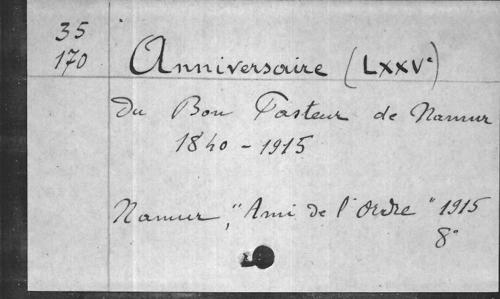 35
170
Anniversaire (LXXVe)
du Bon Pasteur de Namur
1840 - 1915
Namur, "Ami de l'Ordre" 1915
8°